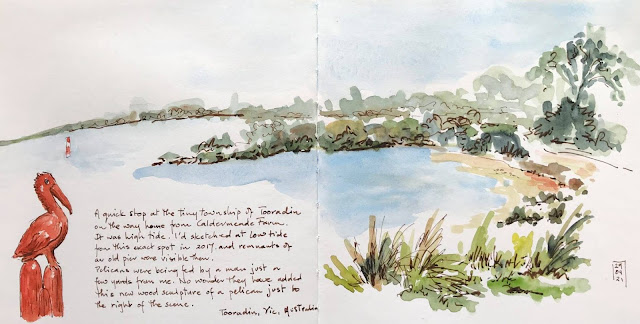 A quick stop at the tiny township of Tooradin
on the way home from Caldermeade Farm.
It was high tide. I'd sketched at low tide
from this exact spot in 2017, and remnants of
an old pier were visible then.
Pelicans were being fed by a man just a
few yards from me. No wonder they have added
this new wood sculpture of a pelican just to
the right of the scene.
Tooradin, Vic, Australia
29
04
21